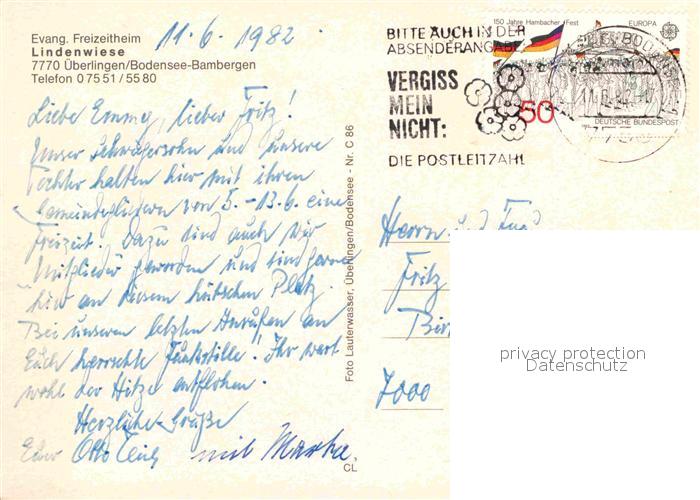 11.6.1982
Evang. Freizeitheim
Lindenwiese
7770 Überlingen/Bodensee-Bambergen
Telefon 0 75 51 / 55 80
Liebe Emmy, lieber Fritz!
Unser Schwiegersohn und unsere
Tochter halten hier mit ihren
Gemeindegliedern von 5.-13.6. eine
Freizeit. Dazu sind auch wir
Mitglieder geworden und sind gerne
hier an diesem hübschen Platz.
Bei unseren letzten Anrufen an
Euch herrschte Funkstille! Ihr wart
wohl der Hitze entflohen.
Herzliche Grüße
Euer Otto mit Martha.
Foto Lauterwasser, Überlingen/Bodensee - Nr. C 86
CL
BITTE AUCH IN DER
ABSENDERANGABE:
VERGISS
MEIN
NICHT:
DIE POSTLEITZAHL
150 Jahre Hambacher Fest
EUROPA
50
DEUTSCHE BUNDESPOST
Herrn und Frau
Fritz
7000
privacy protection
Datenschutz